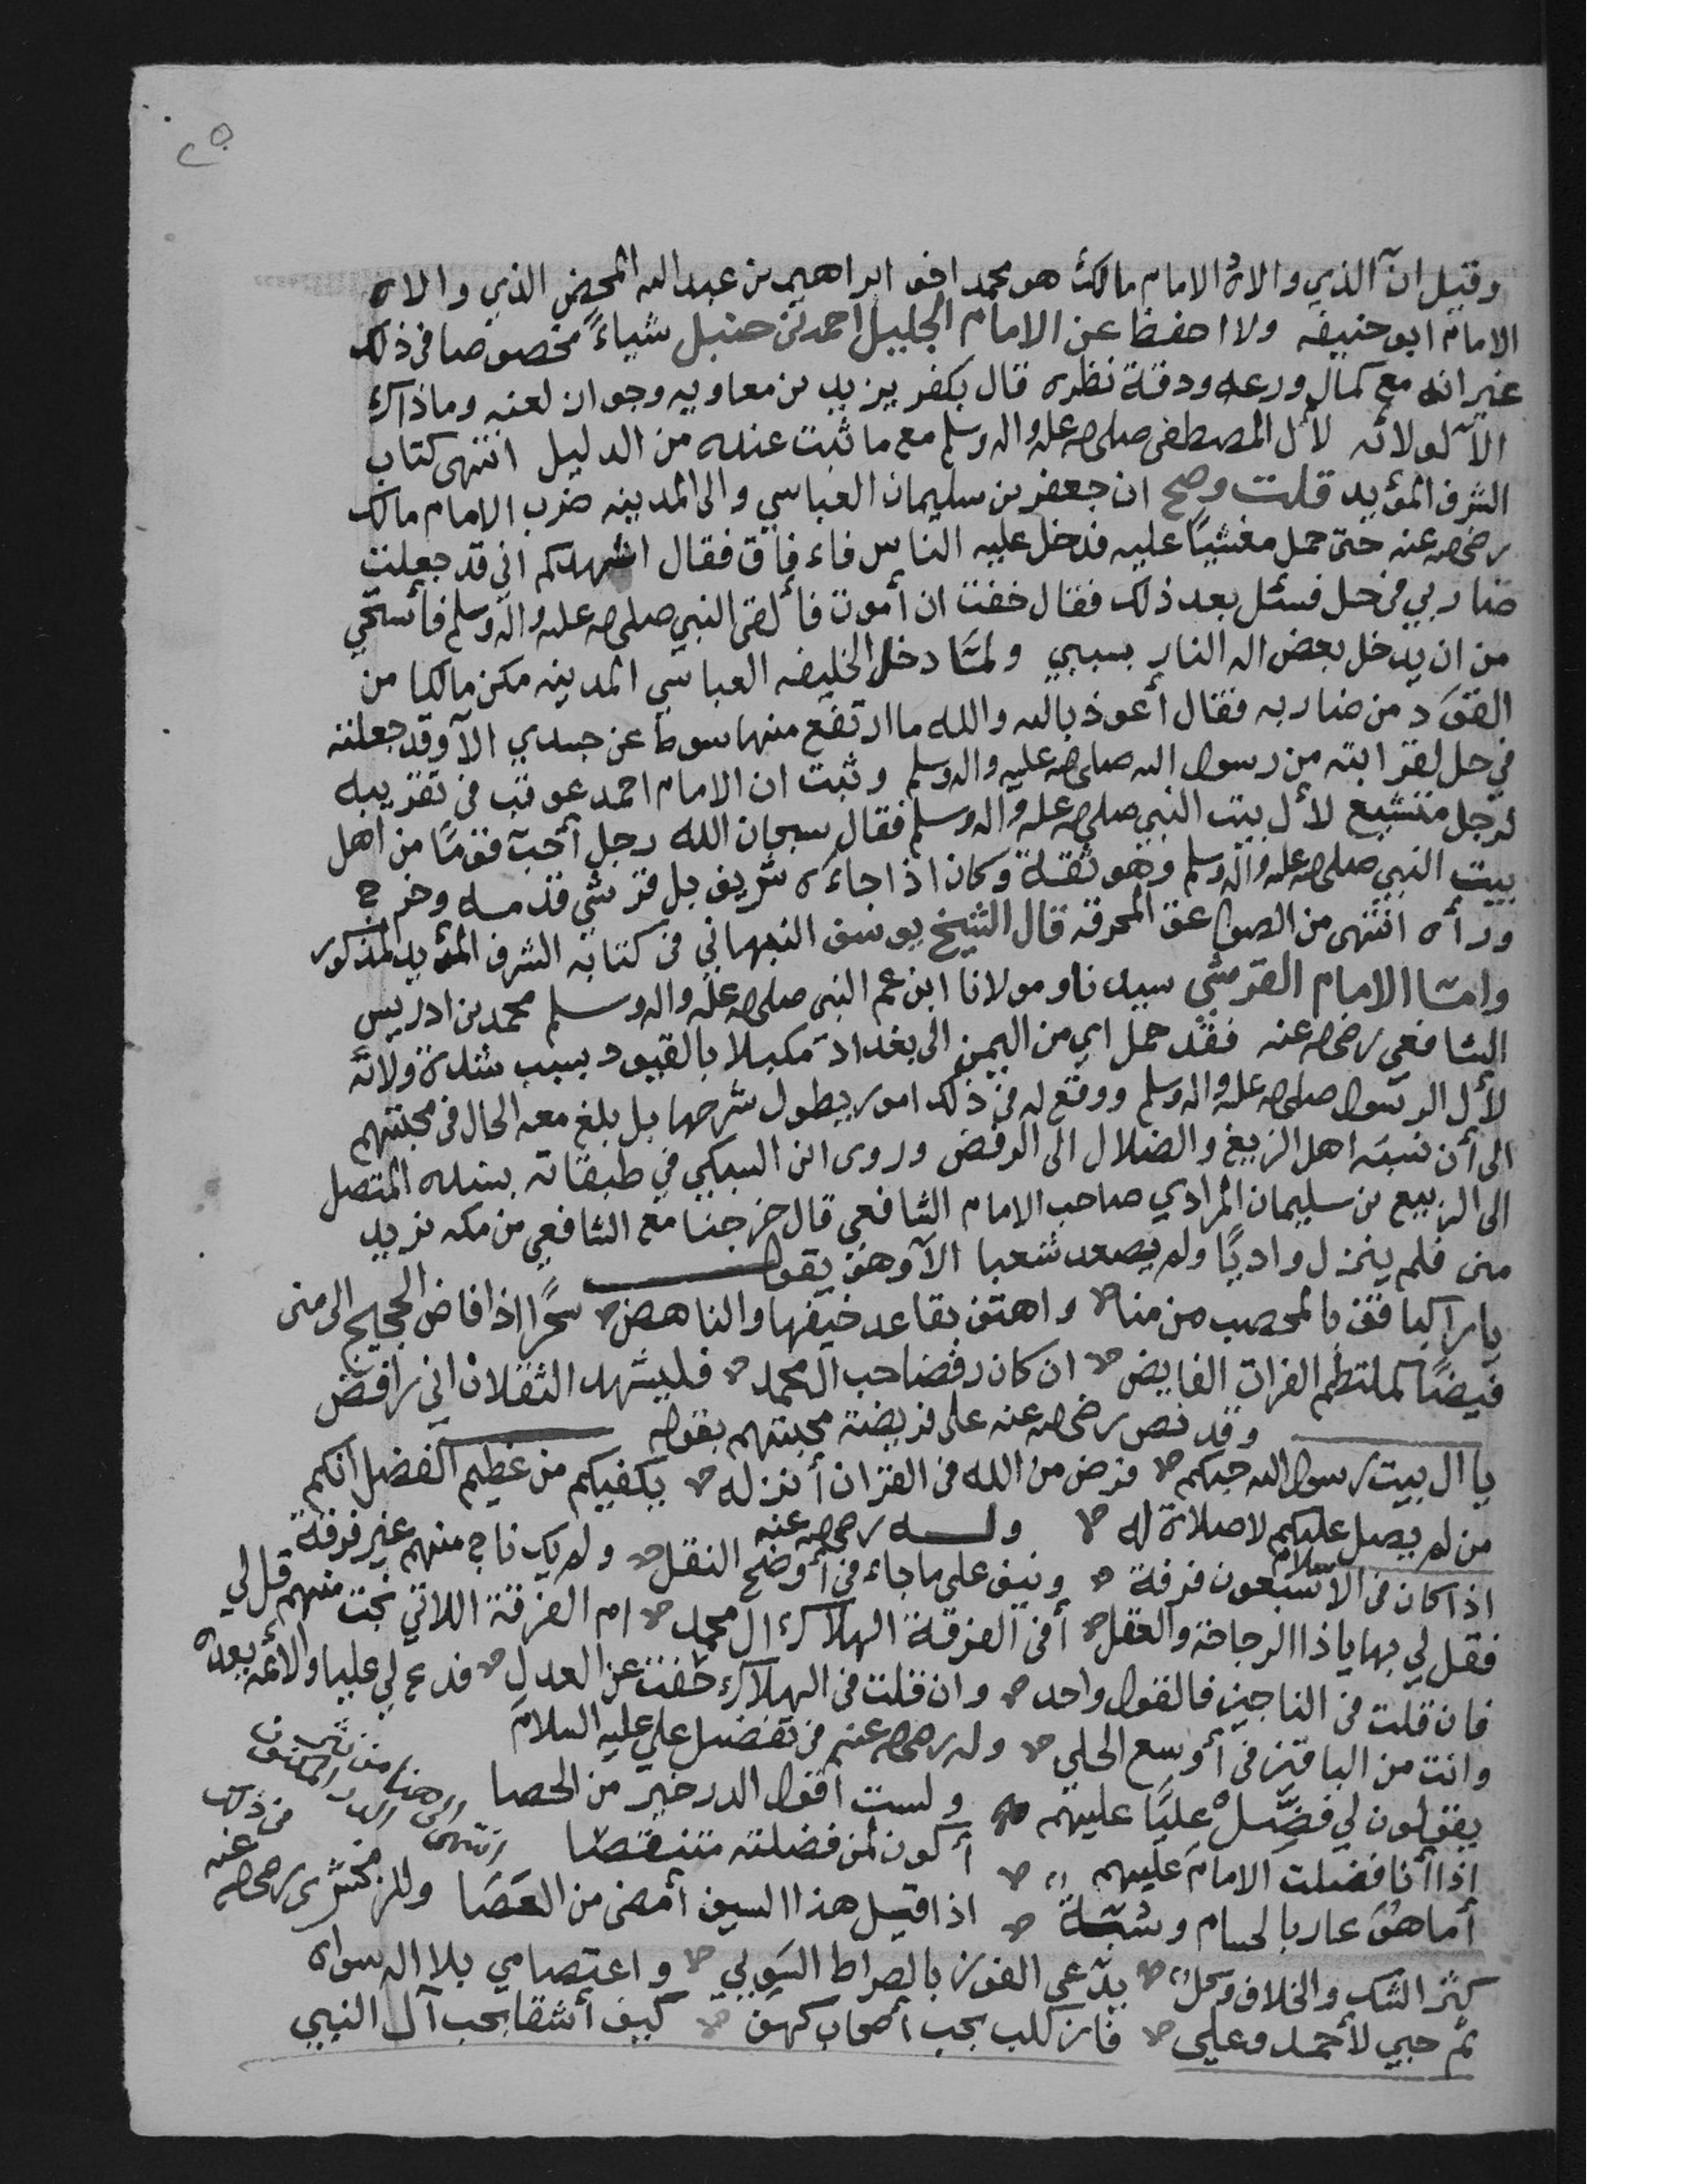 ٢٥
وقيل ان الذي والاه الامام مالك هو محمد اخو ابراهيم بن عبد الله المحض الذي والاه
الامام ابو حنيفه ولا احفظ عن الامام الجليل احمد بن حنبل شياءً مخصوصا في ذلك
غير انه مع كمال ورعه ودقة نظره قال بكفر يزيد بن معاويه وجواز لعنه وما ذاك
الا لولائه لأل المصطفى صلى الله عليه واله وسلم مع ما ثبت عنده من الدليل انتهى كتاب
الشرف المؤيد قلت وصح ان جعفر بن سليمان العباسي والى المدينه ضرب الامام مالك
رضي الله عنه حتى حمل مغشيًا عليه فدخل عليه الناس فاء فاق فقال اشهدكم اني قد جعلت
ضاربي في حل فسئل بعد ذلك فقال خفت ان أموت فألقى النبي صلى الله عليه واله وسلم فأستحي
من ان يدخل بعض اله النار بسببي ولمّا دخل الخليفه العباسي المدينه مكن مالكا من
القوَد من ضاربه فقال أعوذ بالله والله ما ارتفع منها سوط عن جسدي الا وقد جعلته
في حل لقرابته من رسول الله صلى الله عليه واله وسلم وثبت ان الامام احمد عوتب في تقريبه
لرجل متشيع لأل بيت النبي صلى الله عليه واله وسلم فقال سبحان الله رجل أحبّ قومًا من اهل
بيت النبي صلى الله عليه واله وسلم وهو ثقة وكان اذا جاءه شريف بل قرشي قدمه وخرج
وراه انتهى من الصواعق المحرقه قال الشيخ يوسف النبهاني في كتابه الشرف المؤيد المذكور
وامّا الامام القرشي سيدنا ومولانا ابن عم النبي صلى الله عليه واله وسلم محمد بن ادريس
الشافعي رضي الله عنه فقد حمل اي من اليمن الى بغداد مكبلا بالقيود بسبب شدة ولائه
لأل الرسول صلى الله عليه واله وسلم ووقع له في ذلك امور يطول شرحها بل بلغ معه الحال في محبتهم
الى أن نسبَه اهل الزيغ والضلال الى الرفض وروى ابن السبكي في طبقاته بسنده المتصل
الى الربيع بن سليمان المرادي صاحب الامام الشافعي قال خرجنا مع الشافعي من مكه نريد
منى فلم ينزل واديًا ولم يصعد شعبا الا وهو يقول
يا راكبا قف بالمحصب من منا واهتف بقاعد خيفها والناهض سحرًا اذا فاض الحجيج الى منى
فيضًا كملتطم الفرات الفايض ان كان رفضا حب ال محمد فليشهد الثقلان اني رافض
وقد نص رضي الله عنه على فريضة محبتهم بقوله
يا ال بيت رسول الله حبكم فرض من الله في القران أنزله يكفيكم من عظيم الفضل انكم
من لم يصل عليكم لا صلاة له وله رضي الله عنه
اذا كان في الاسلام سبعون فرقة ونيف على ما جاء في أوضح النقل ولم يك ناج منهم غير فرقة
فقل لي بها يا ذا الرجاحة والعقل أفي الفرقة الهلاك ال محمد ام الفرقة اللاتي نجت منهم قل لي
فان قلت في الناجين فالقول واحد وان قلت في الهلاك حفت عن العدل فدع لي عليا والائمه بعده
وانت من الباقين في أوسع الحلي وله رضي الله عنه في تفضيل علي عليه السلام
يقولون لي فضّل عليًا عليهم ولست اقول الدر خير من الحصا
اذا أنا فضلت الامام عليهم أكون لمن فضلته متنقصا
أما هو عار بالحسام وشبّة اذا قيل هذا السيف أمضى من العَصَا
انتهى الى هنا من
وللزمخشري رضي الله عنه في ذلك
كثر الشك والخلاف وكل يدّعى الفوز بالصراط السَوِيي واعتصامي بلا اله سواه
ثم حبي لأحمد وعلي فاز كلب بحب أصحاب كهف كيف أشقا بحب آل النبيي